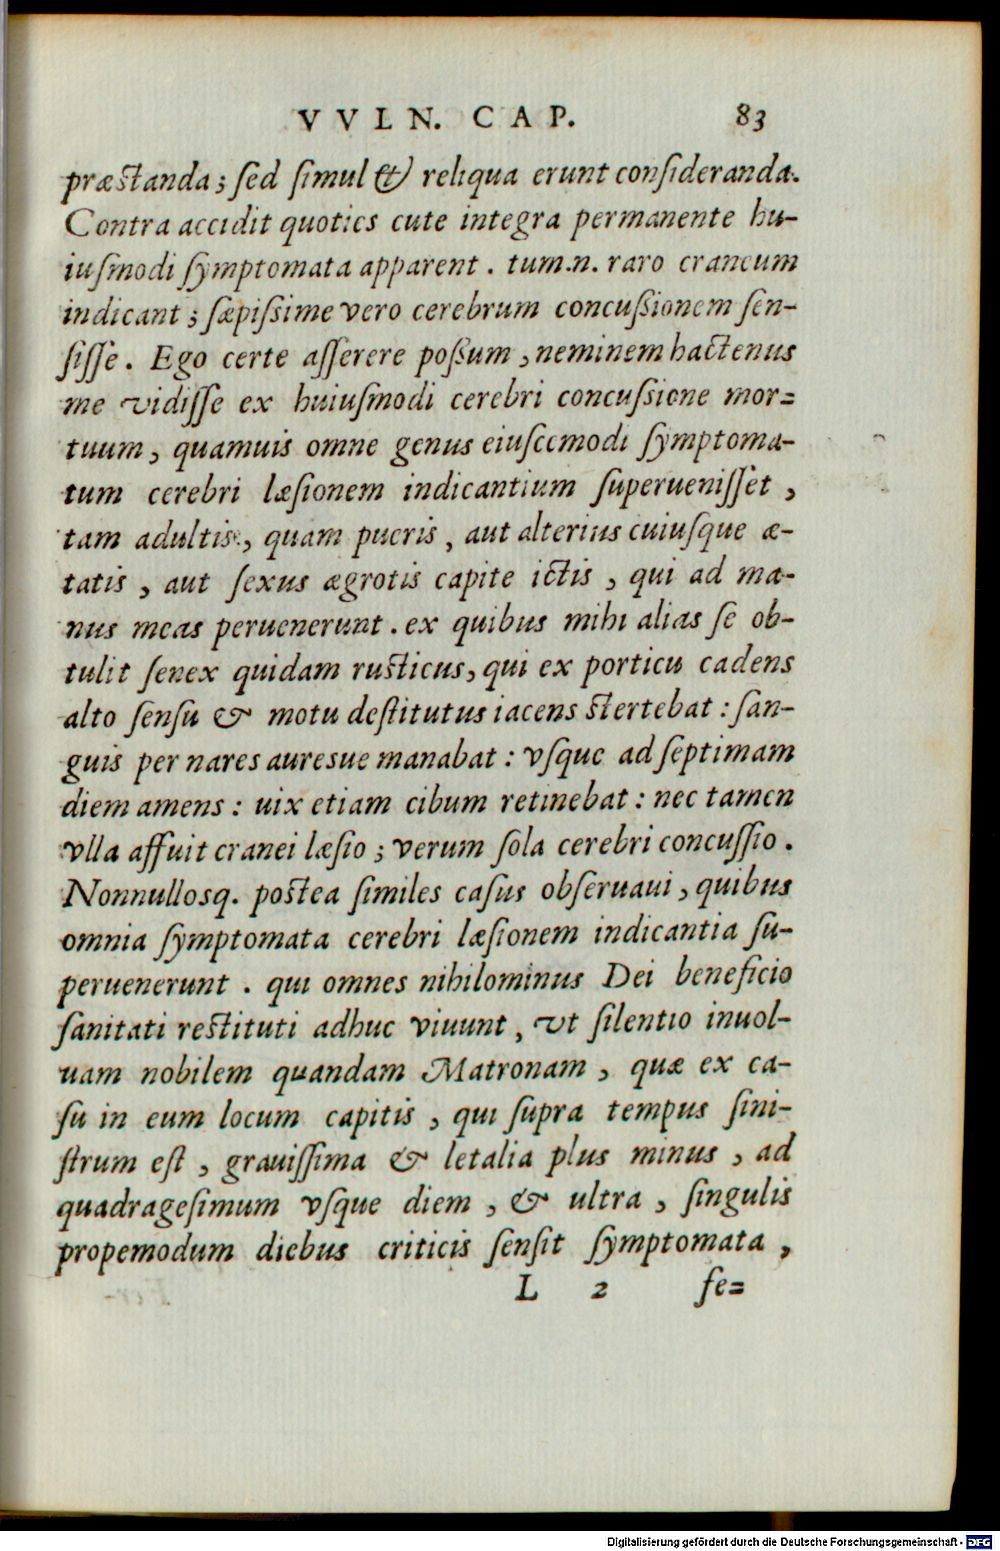 VVLN. CAP. 83
præstanda; ſed ſimul & reliqua erunt conſideranda.
Contra accidit quoties cute integra permanente hu-
iuſmodi ſymptomata apparent. tum.n. raro craneum
indicant; ſæpiſsime vero cerebrum concuſsionem ſen-
ſiſſe. Ego certe aſſerere poſſum, neminem hactenus
me vidiſſe ex huiuſmodi cerebri concuſsione mor=
tuum, quamuis omne genus eiuſcemodi ſymptoma-
tum cerebri læſionem indicantium ſuperueniſſet,
tam adultis, quam pueris, aut alterius cuiuſque æ-
tatis, aut ſexus ægrotis capite ictis, qui ad ma-
nus meas peruenerunt. ex quibus mihi alias ſe ob-
tulit ſenex quidam ruſticus, qui ex porticu cadens
alto ſenſu & motu deſtitutus iacens ſtertebat: ſan-
guis per nares aureſue manabat: vſque ad ſeptimam
diem amens: uix etiam cibum retinebat: nec tamen
vlla affuit cranei læſio; verum ſola cerebri concuſſio.
Nonnulloſq. poſtea ſimiles caſus obſeruaui, quibus
omnia ſymptomata cerebri læſionem indicantia ſu-
peruenerunt. qui omnes nihilominus Dei beneficio
ſanitati reſtituti adhuc viuunt, vt ſilentio inuol-
uam nobilem quandam Matronam, quæ ex ca-
ſu in eum locum capitis, qui ſupra tempus ſini-
ſtrum eſt, grauiſſima & letalia plus minus, ad
quadrageſimum vſque diem, & ultra, ſingulis
propemodum diebus criticis ſenſit ſymptomata,
L 2 ſe=
Digitalisierung gefördert durch die Deutsche Forschungsgemeinschaft - DFG